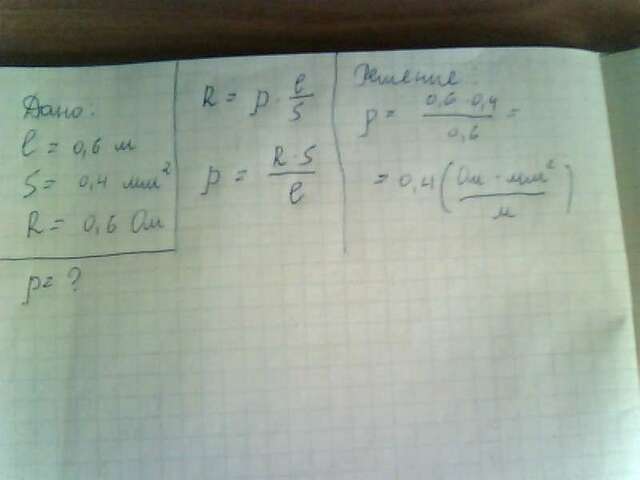 Дано:
l = 0,6 м
S = 0,4 мм²
R = 0,6 Ом
ρ = ?
R = ρ · l/S
ρ = R · S / l
Решение:
ρ = 0,6 · 0,4 / 0,6 =
= 0,4 (Ом · мм² / м)